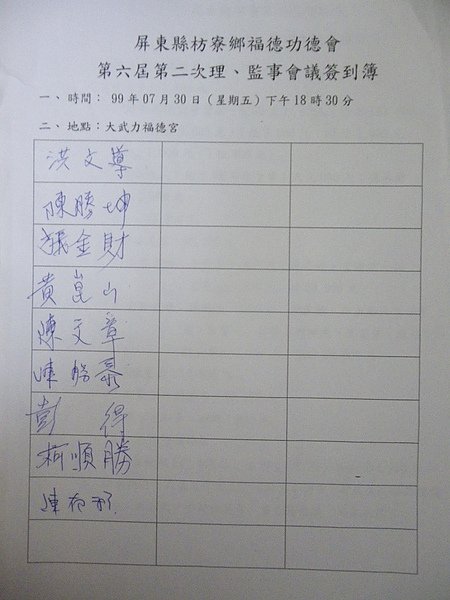 屏東縣枋寮鄉福德功德會
第六屆第二次理、監事會議簽到簿
一、時間：99年07月30日(星期五)下午18時30分
二、地點：大武力福德宮
洪文導
陳勝坤
張金財
黃崑山
陳文章
陳
彭 得
柯順勝
陳